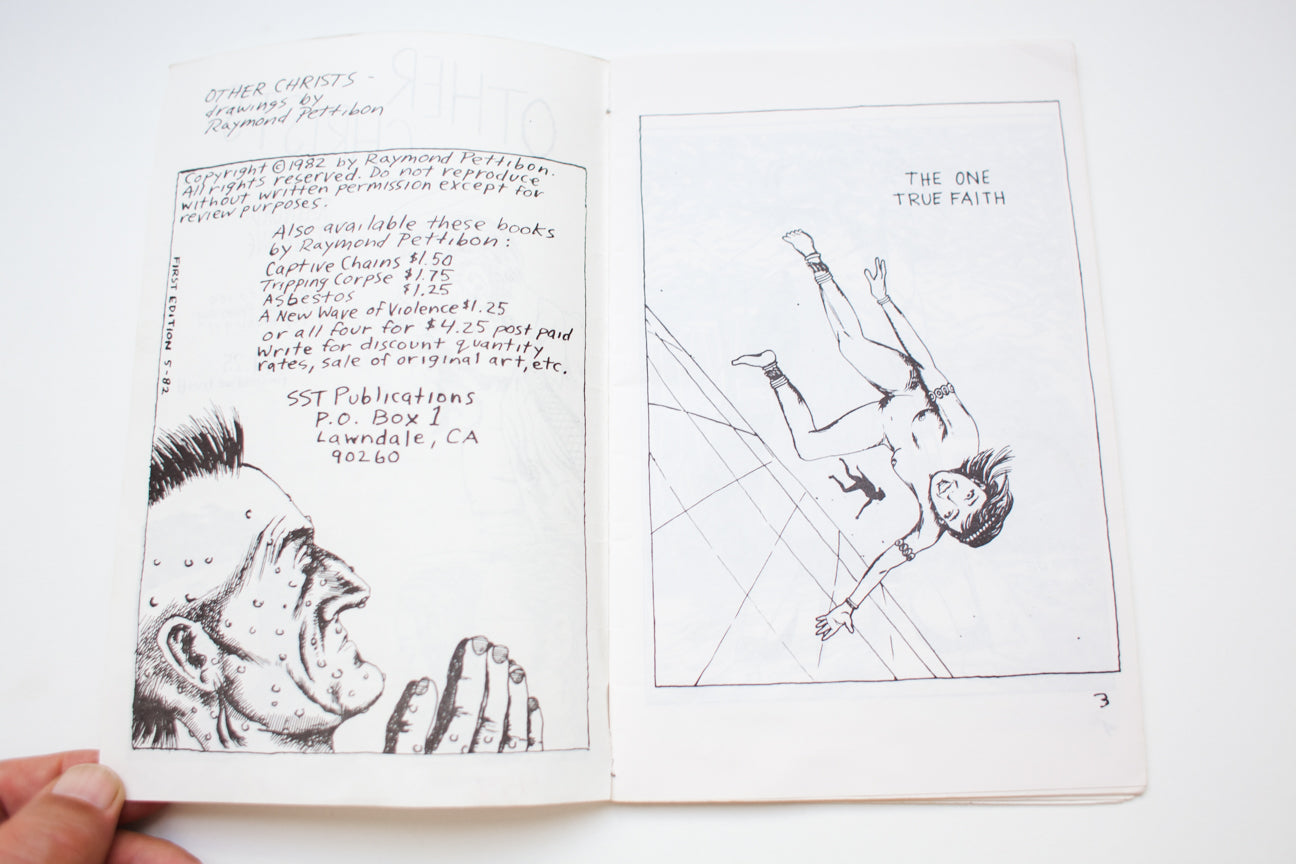 OTHER CHRISTS -
drawings by
Raymond Pettibon
Copyright ©1982 by Raymond Pettibon.
All rights reserved. Do not reproduce
without written permission except for
review purposes.
Also available these books
by Raymond Pettibon:
Captive Chains $1.50
Tripping Corpse $1.75
Asbestos $1.25
A New Wave of Violence $1.25
or all four for $4.25 post paid
Write for discount quantity
rates, sale of original art, etc.
SST Publications
P.O. Box 1
Lawndale, CA
90260
FIRST EDITION 5-82
THE ONE
TRUE FAITH
3